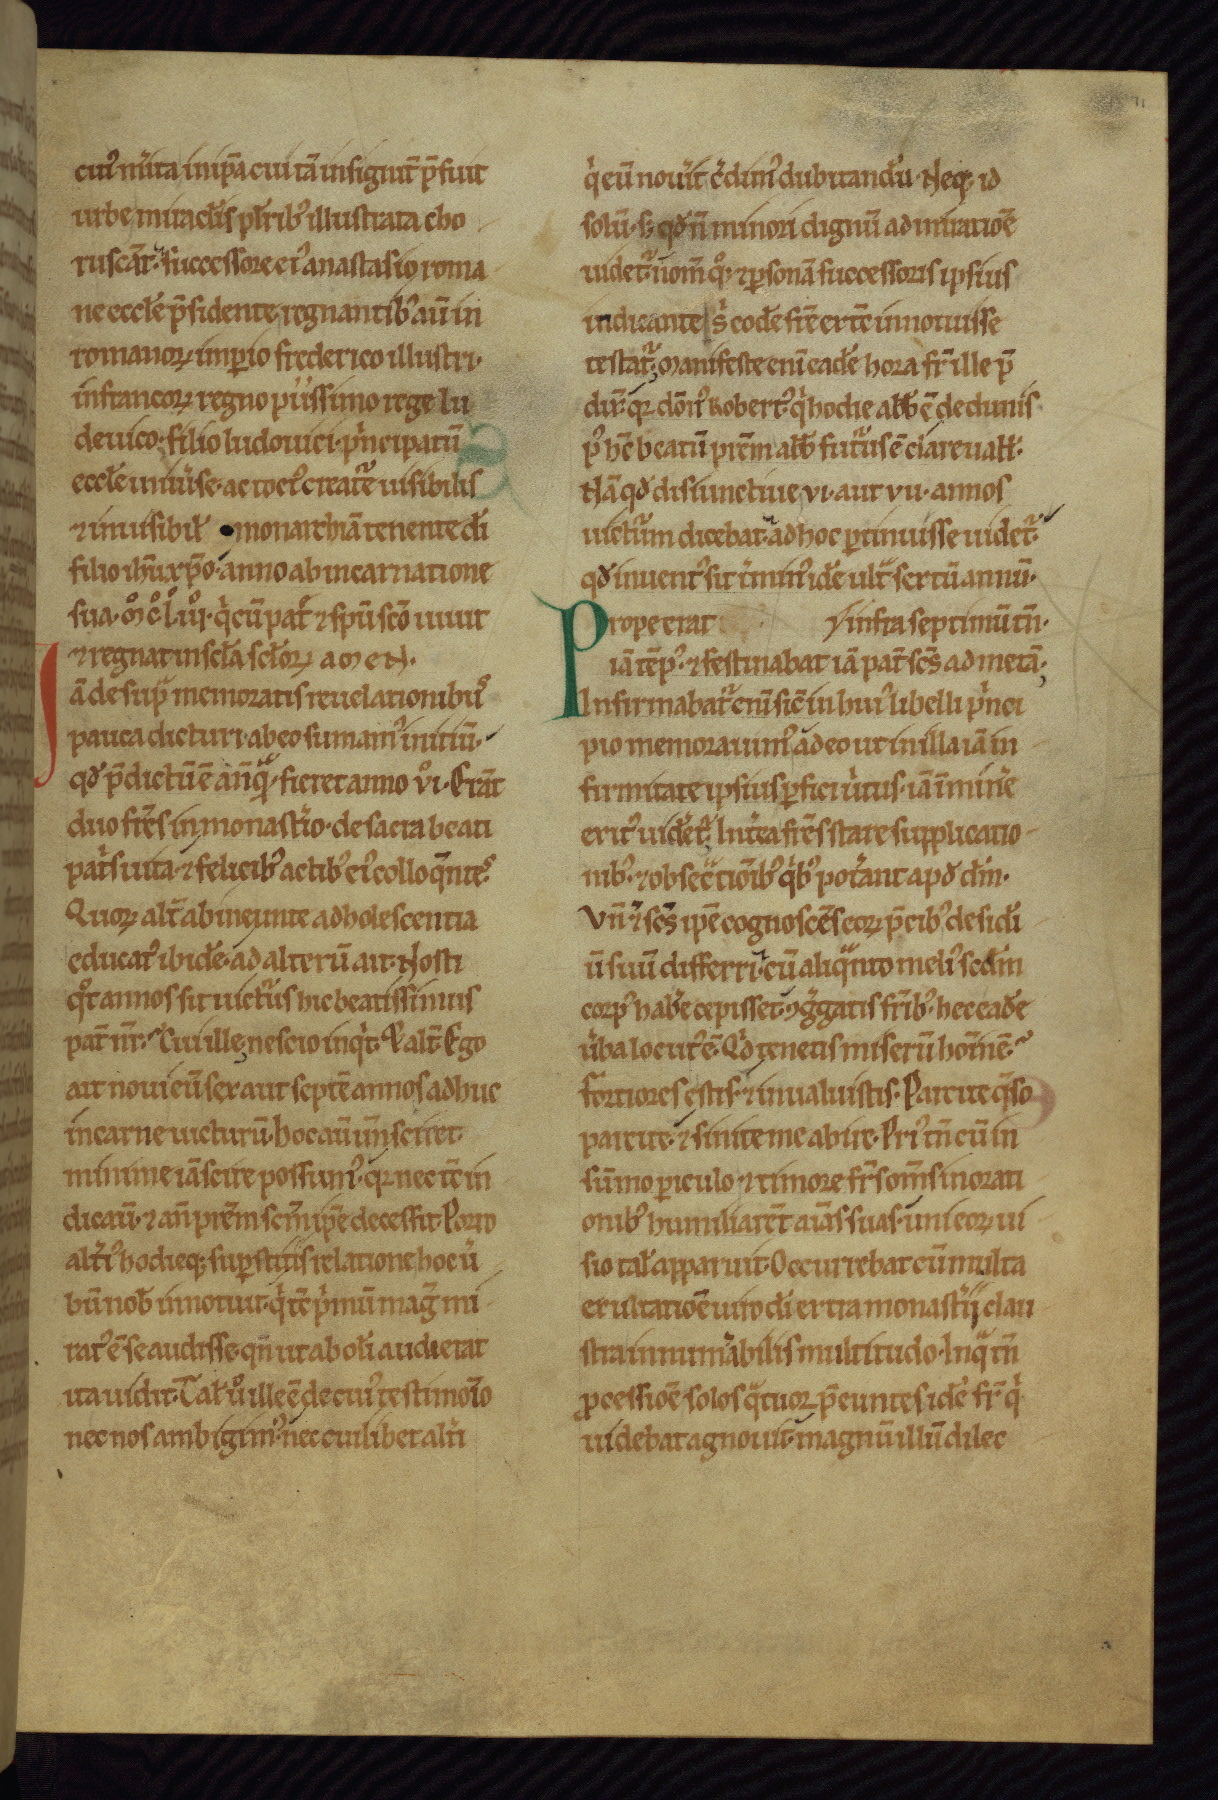 cui᷒ mͥita in ip̄a ciuitā insignit̄ p̄fuit
urbe miracłis pl̄rib᷒ illustrata cho
ruscāt. successore ei᷒ anastasio roma
ne eccłe p̄sidente. regnantib᷒ aū in
romanoꝝ imꝑio frederico illustri.
in francoꝝ regno piissimo rege lu
deuico. filio ludouici. pͥncipatū
eccłe uniūse. ac toci᷒ creatᷓe uisibilis
⁊ inuisibił monarchiā tenente dī
filio ih̄u xp̄o. anno ab incarnatione
sua. M̊. C̊. L̊. VI̊. qͥ cū pat̄ ⁊ sp̄u sc̄o uiuit
⁊ regnat in scła scłoꝝ amen.
Jā de supᷓ memoratis reuelationib᷒
pauca dicturi. ab eo sumam᷒ initiū.
qđ p̄dictū ē an̄qᷓ fieret anno VI̊. Erāt
duo fr̄es in monastͥio. de sacra beati
patͥs uita ⁊ felicib᷒ actib᷒ ei᷒ colloq̄ntes.
Quoꝝ alt̄ ab ineunte adholescentia
educat᷒ ibidē. ad alterū ait. Nosti
qͦt annos sit uictᷓus hic beatissimus
pat̄ nr̄. Cui ille. nescio inqͥt. ⁊ alt̄. Ego
ait noui eū sex aut septē annos adhuc
in carne uicturū. hoc aū un̄ sciret
minime iā scire possum᷒. qꝛ nec tc̄ in
dicauͥ. ⁊ an̄ prēm sc̄m ip̄e decessit. Porro
alt̄i᷒ hodieqꝫ suꝑstitis relatione hoc ū
bū nob̄ innotuit. qͥ tc̄ pͥmū mag̊ mi
rat᷒ ē se audisse. qn̄ ut ab oł audierat
ita uidit. Tał uͦ ille ē de cui᷒ testimoīo
nec nos ambigim᷒. nec cuilibet altͥi
qͥ eū nouͥit c̄dim᷒ dubitandū. Neqꝫ id
solū. sꝫ qđ n̄ minori dignū admiratiōe
uidetᷓ. nom̄ qͦqꝫ ⁊ ꝑsonā successoris ipsius
indicante sͥ eodē frē certē innotuisse
testatᷓ. Manifeste enī eadē hora fr̄ ille p̄
dix̄. qꝛ don̄᷒ Robert᷒ qͥ hodie abb̄ ē de dunis
p᷒ hc̄ beatū prēm abb̄ futᷓus ē clareuall̄.
Nā qđ disiunctiue vi. aut vii. annos
uictᷓum dicebat. ad hoc ꝑtinuisse uidetᷓ.
qđ inuent᷒ sit tͥmin᷒ idē ult̄ sextū annū.
Prope erat infra septimū tn̄.
iā tēp᷒. ⁊ festinabat iā pat̄ sc̄s ad metā.
Infirmabatᷓ. enī sic̄ in hui᷒ libelli pͥnci
pio memorauim᷒ adeo ut in illa iā in
firmitate ipsius ꝑficiūtus. iā īmine
erit᷒ uidetᷓ. Int̄ea fr̄es stare supplicatio
nib᷒. ⁊ obsec̄tiōib᷒ qͥb᷒ potͣant apđ dm̄.
Vn̄ ⁊ sc̄s ip̄e cognoscēs eoꝝ p̄cib᷒ desidͥi
ū suū differri. cū aliqᷓnto meli᷒ scđm
corp᷒ habͤe cepisset. ꝯg̊gatis fr̄ib᷒ hec eadē
ūba locut᷒ ē. Qͥd tenetis miserū hoīnē.
Fortiores estis. ⁊ inualuistis. Parcite q̄so
parcite. ⁊ sinite me abire. Pri᷒ tn̄ cū in
sūmo ꝑiculo ⁊ timore fr̄s om̄s in orati
onib᷒ humiliarēt aīas suas. uni eoꝝ ui
sio tał apparuit. Occurrebat cū multa
exultatiōe uiro dī extra monastͥii clau
stra innumͥabilis multitudo. In qᷓ tn̄
ꝓcessiōe solos qᷓtuor p̄eunteſ idē fr̄ qͥ
uidebat agnouit. magnū illū dilec